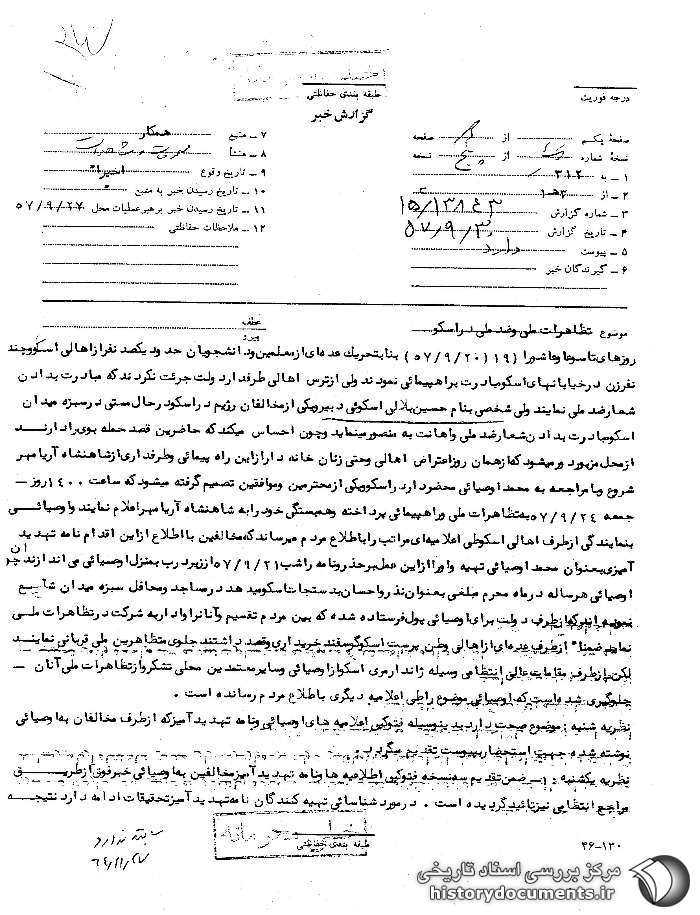 طبقه بندی حفاظتی
گزارش خبر
درجه فوریت
صفحه یکم از صفحه
نسخه شماره از پنج نسخه
۱ – به ۳۱۲
۲ – از
۳ – شماره گزارش
۴ – تاریخ گزارش
۵ – پیوست دارد
۶ – گیرندگان خبر
۷ – منبع همکار
۸ – منشأ
۹ – تاریخ وقوع اخیرا"
۱۰ – تاریخ رسیدن خبر به منبع "
۱۱ – تاریخ رسیدن خبر برهبر عملیات محل ۵۷/۹/۲۷
۱۲ – ملاحظات حفاظتی
موضوع تظاهرات ملی وضد ملی دراسکو
عطف
پیرو
روزهای تاسوعا وعاشورا (۱۹ و ۵۷/۹/۲۰) بنا بتحریک عده ای ازمعلمین ودانشجویان حدود یکصد نفرازاهالی اسکووچند
نفرزن درخیابانهای اسکومبادرت براهپیمائی نمودند ولی ازترس اهالی طرفدارد ولت جرئت نکردند که مبادرت بدادن
شعارضد ملی نمایند ولی شخصی بنام حسین بلالی اسکوئی دبیرویکی ازمخالفان رژیم دراسکودرحال مستی درسبزه میدان
اسکومبادرت بدادن شعارضد ملی واهانت به منصورمینماید وچون احساس میکند که حاضرین قصد حمله بوی رادارند
ازمحل مزبوردورمیشود که ازهمان روزاعتراض اهالی وحتی زنان خانه دارازاین راه پیمائی وطرفداری ازشاهنشاه آریامهر
شروع وبا مراجعه به محمد اوصیائی محضردارد راسکوویکی ازمحترمین وموافقین تصمیم گرفته میشود که ساعت ۱۴۰۰ روز –
جمعه ۵۷/۹/۲۴ به تظاهرات ملی وراهپیمائی پرداخته وهمبستگی خودرا به شاهنشاه آریامهراعلام نمایند واوصیائی
بنمایندگی ازطرف اهالی اسکوطی اعلامیه ای مراتب راباطلاع مردم میرساند که مخالفین با اطلاع ازاین اقدام نامه تهدید
آمیزی بعنوان محمد اوصیائی تهیه واورا ازاین عمل برحذر ونامه راشب ۵۷/۹/۲۱ اززیردرب بمنزل اوصیائی می اندازند چون
اوصیائی هرساله درماه محرم مبلغی بعنوان نذرواحسان بدستجات اسکومیدهد درمساجد ومحافل سبزه میدان شایع
نموده اند که ازطرف دولت برای اوصیائی پول فرستاده شده که بین مردم تقسیم وآنانراوادار به شرکت درتظاهرات ملی
نماید ضمنا" ازطرف عده ای ازاهالی وطن پرست اسکوگوسفند خریداری وقصد داشتند جلوی متظاهرین ملی قربانی نمایند
لکن ازطرف مقامات عالی انتظامی وسیله ژاندارمری اسکوازاوصیائی وسایرمعتمدین محلی تشکروازتظاهرات ملی آنان –
جلوگیری شده است که اوصیائی موضوع راطی اعلامیه دیگری باطلاع مردم رسانده است .
نظریه شنبه : موضوع صحت دارد بدینوسیله فتوکپی اعلامیه های اوصیائی ونامه تهدیدآمیزکه ازطرف مخالفان به اوصیائی
نوشته شده جهت استحضاربپیوست تقدیم میگردد .
نظریه یکشنبه : – ضمن تقدیم سه نسخه فتوکپی اعلامیه ها ونامه تهدیدآمیزمخالفین به اوصیائی خبرفوق ازطریق
مراجع انتظامی نیزتائید گردیده است . درمورد شناسائی تهیه کنندگان نامه تهدیدآمیزتحقیقات ادامه دارد نتیجه
محرمانه
طبقه بندی حفاظتی
۴۶-۱۳۰
سابقه ندارد
مرکز بررسی اسناد تاریخی
historydocuments.ir